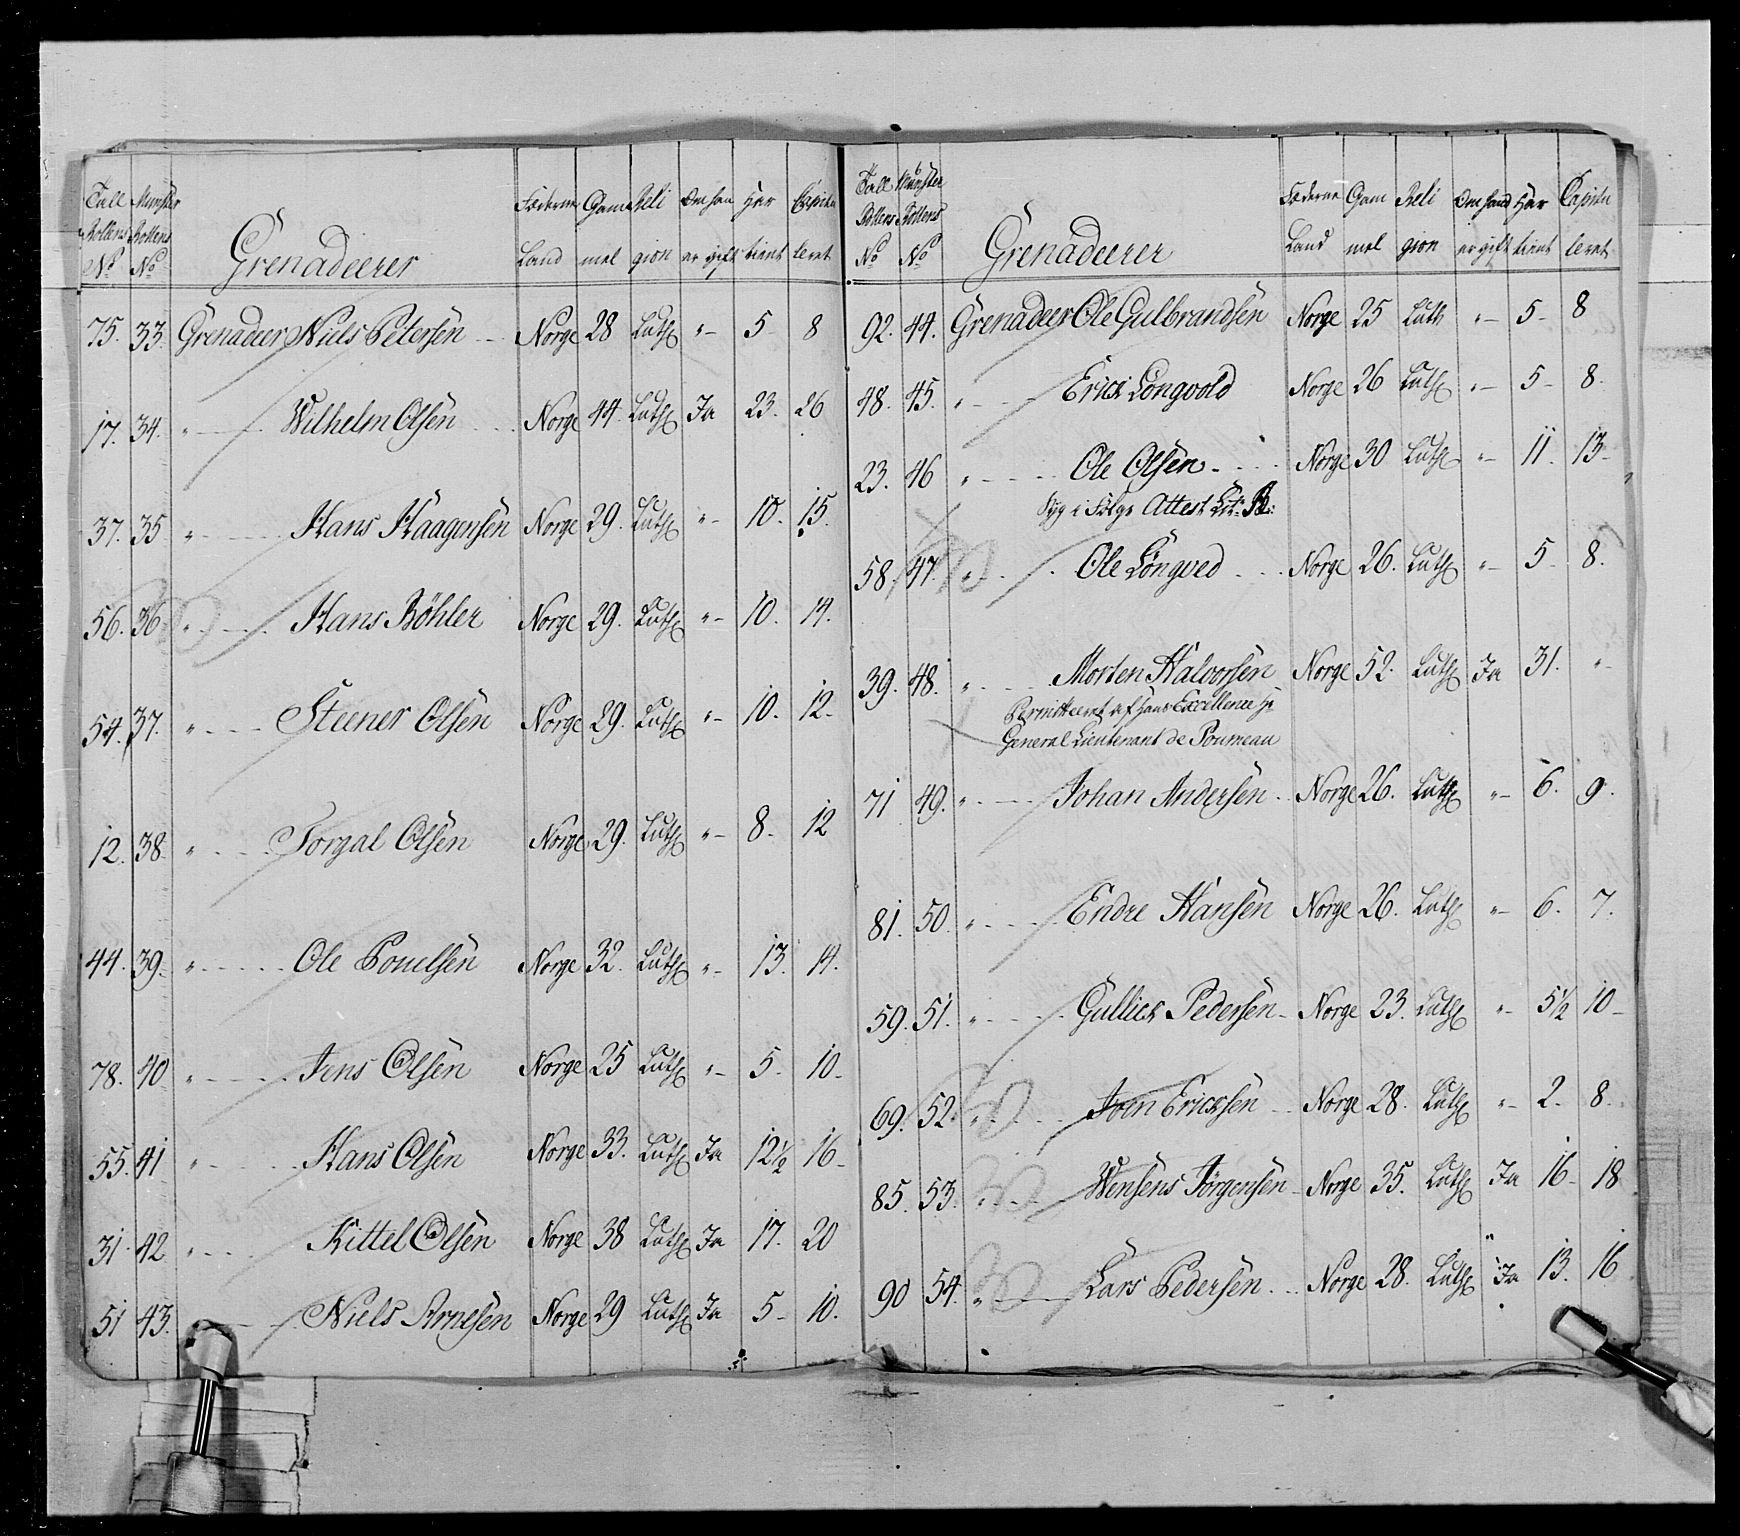 Tall Rollens No Munster Rollens No Grenadeerer Fæderne Land Gam mel Reli gion Om han er gift Har tient Capitu leret
75. 33. Grenadeer Niels Petersen Norge 28 Luth „- 5 8
17. 34. „ Wilhelm Olsen Norge 44. Luth Ja 23. 26
37. 35 „ Hans Haagensen Norge 29. Luth „- 10. 15.
56. 36 „ Hans Böhler Norge 29. Luth „- 10. 14.
54. 37. „ Steener Olsen Norge 29. Luth „- 10. 12.
12. 38. „ Torgal Olsen Norge 29. Luth „- 8. 12
44. 39. „ Ole Pouelsen Norge 32. Luth „- 13. 14.
78. 40 „ Jens Olsen Norge 25 Luth „- 5. 10.
55. 41 „ Hans Olsen Norge 33. Luth Ja 12½ 16
31. 42 „ Kittel Olsen Norge 38 Luth Ja 17. 20
51 43. Niels Arnesen Norge 29 Luth Ja 5 10.
Tall Rollens No Munster Rollens No Grenadeerer Fæderne Land Gam mel Reli gion Om hand er gift Har tient Capitu leret
92. 44. Grenadeer Ole Gulbrandsen Norge 25 Luth „- 5 8
48. 45. „ Erich Longvold Norge 26 Luth „- 5 8.
23. 46 „ Ole Olsen Norge 30 Luth „- 11. 13
Syg i Følge Attest Litr: B:
58. 47. „ Ole Löngved Norge 26. Luth „- 5 8.
39. 48. „ Morten Halvorsen Norge 52. Luth Ja 31. „-
Permitteret af hans Excellence Hr
General Lieutenant de Poumeau
71 49. „ Johan Andersen Norge 26. Luth „- 6. 9.
81. 50. „ Endre Hansen Norge 26. Luth „- 6. 7.
59. 51. „ Gullich Pedersen Norge 23. Luth „- 5½ 10
69. 52. „ Joen Ericksen Norge 28. Luth „- 2. 8.
85. 53. „ Wensens Jörgensen Norge 35. Luth Ja 16 18
90 54. „ Lars Pedersen Norge 28. Luth Ja 13. 16